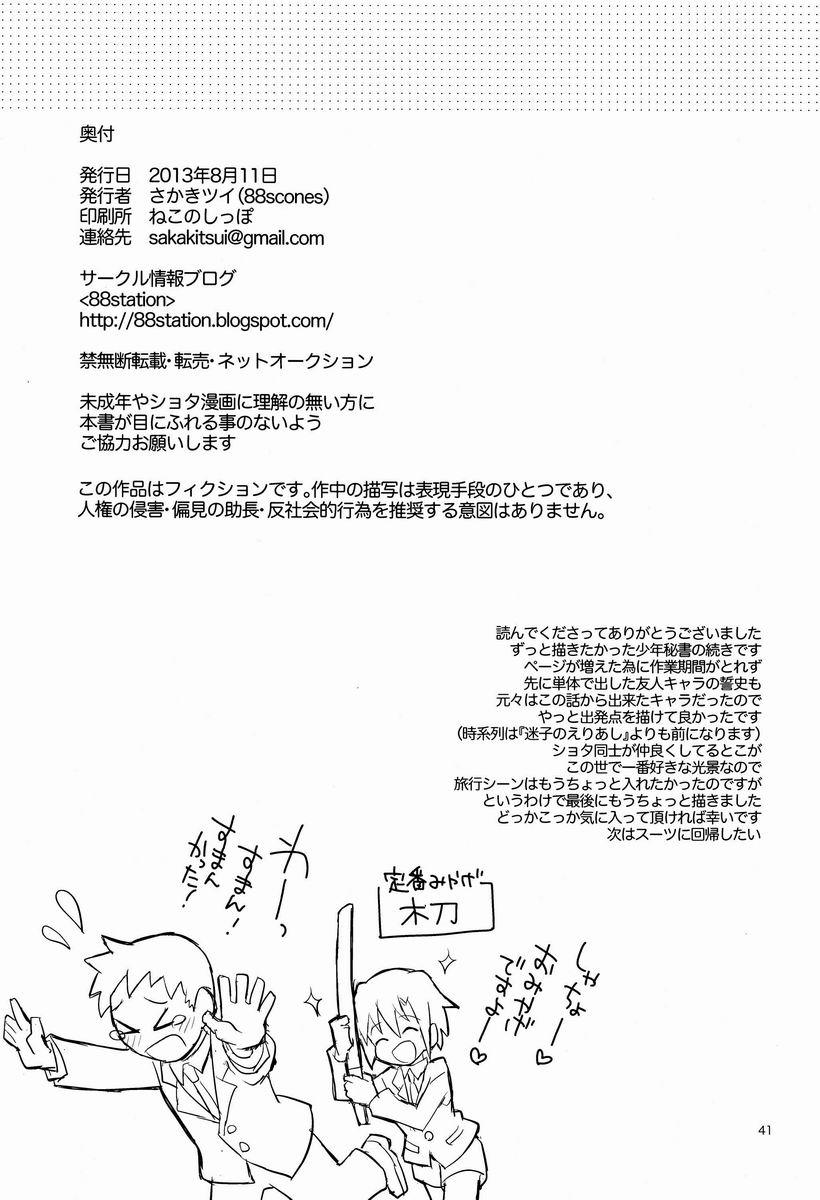 奥付
発行日 2013年8月11日
発行者 さかきツイ(88scones)
印刷所 ねこのしっぽ
連絡先 sakakitsui@gmail.com
サークル情報ブログ
<88station>
http://88station.blogspot.com/
禁無断転載・転売・ネットオークション
未成年やショタ漫画に理解の無い方に
本書が目にふれる事のないよう
ご協力お願いします
この作品はフィクションです。作中の描写は表現手段のひとつであり、
人権の侵害・偏見の助長・反社会的行為を推奨する意図はありません。
読んでくださってありがとうございました
ずっと描きたかった少年秘書の続きです
ページが増えた為に作業期間がとれず
先に単体で出した友人キャラの誓史も
元々はこの話から出来たキャラだったので
やっと出発点を描けて良かったです
(時系列は『迷子のえりあし』よりも前になります)
ショタ同士が仲良くしてるとこが
この世で一番好きな光景なので
旅行シーンはもうちょっと入れたかったのですが
というわけで最後にもうちょっと描きました
どっかこっか気に入って頂ければ幸いです
次はスーツに回帰したい
わーっ
すまん!
すまんかった!
定番みやげ
木刀
しゃちょー♡
おみやげ
ですよー♡
41